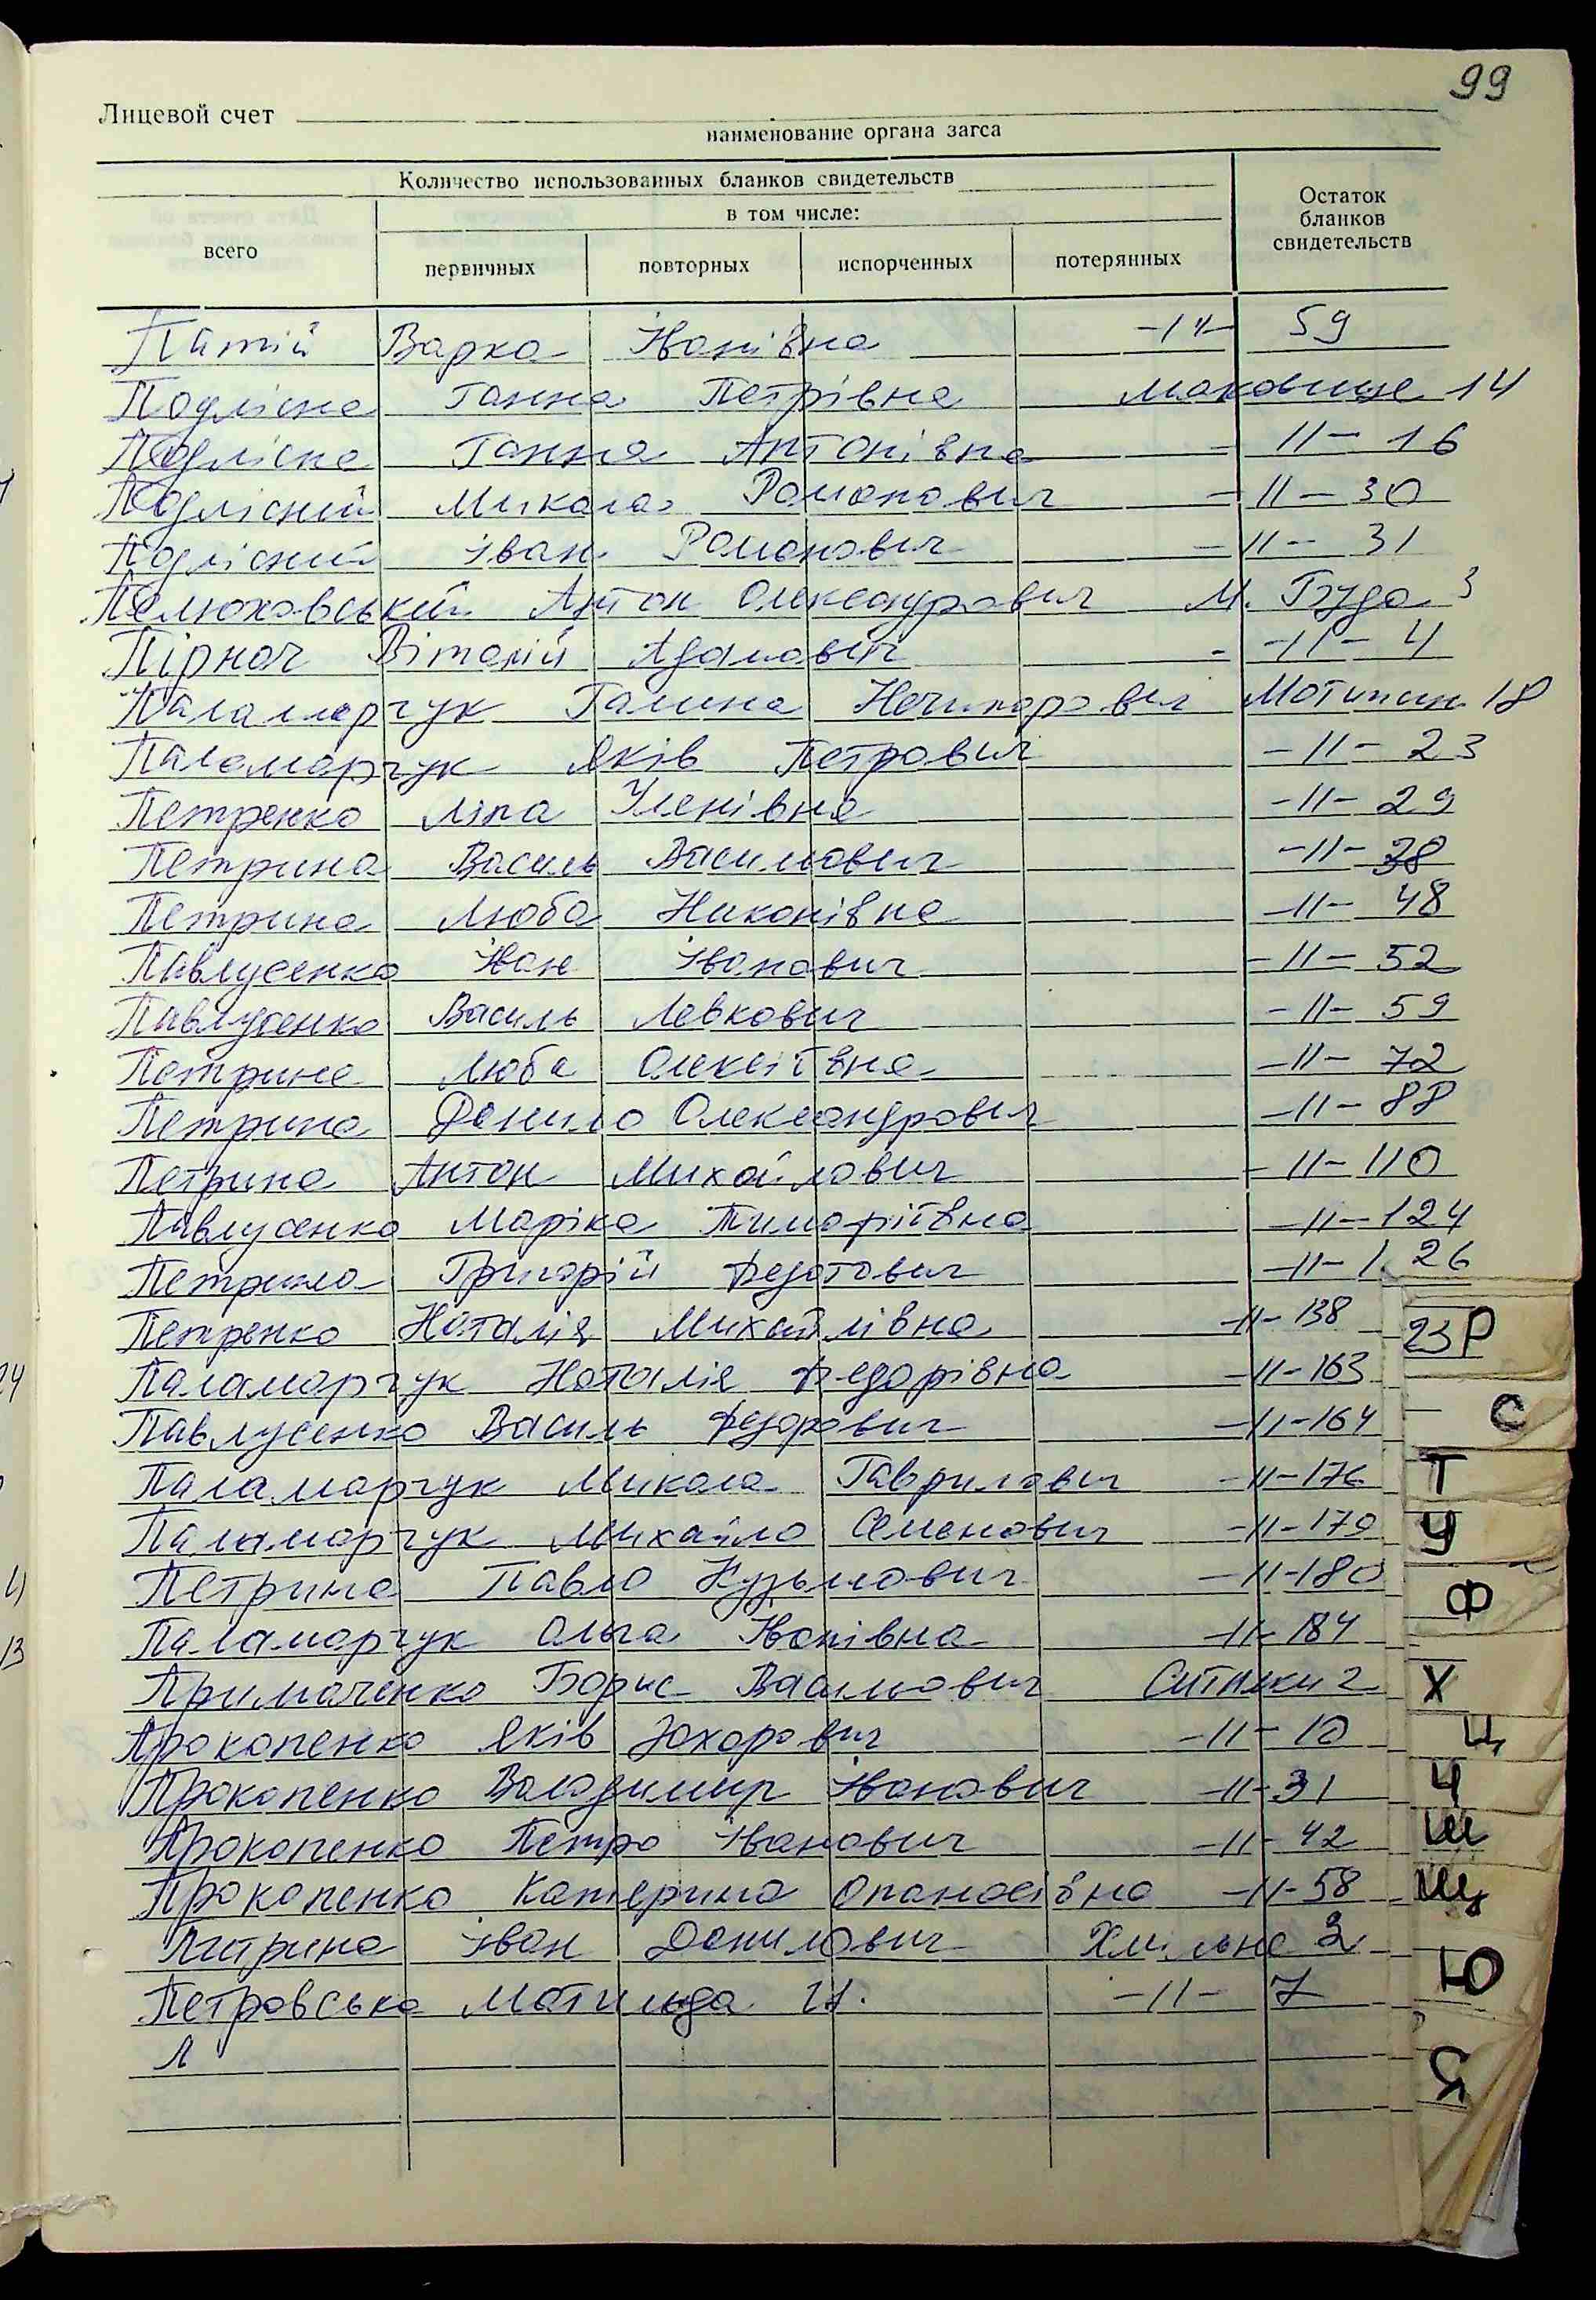 99
Лицевой счет
наименование органа загса
Количество использованных бланков свидетельств
Остаток бланков свидетельств
в том числе:
всего
первичных повторных испорченных потерянных
Патій Варка Іванівна -11- 59
Подлісна Ганна Петрівна Маковище 14
Подлісна Ганна Антонівна -11- 16
Подлісний Микола Романович -11- 30
Подлісний Іван Романович -11- 31
Пелюховський Антон Олександрович М. Буда 3
Пірноч Віталій Адамович -11- 4
Паламарчук Галина Нечипорович Мотижин 18
Паламарчук Яків Петрович -11- 23
Петренко Ліпа Улянівна -11- 29
Петрина Василь Васильович -11- 38
Петрина Люба Никонівна -11- 48
Павлусенко Іван Іванович -11- 52
Павлусенко Василь Левкович -11- 59
Петрина Люба Олексіївна -11- 72
Петрина Данило Олександрович -11- 88
Петрина Антон Михайлович -11- 110
Павлусенко Маріка Тимофіївна -11- 124
Петрина Григорій Федотович -11- 126
Петренко Наталія Михайлівна -11- 138
Паламарчук Наталія Федорівна -11- 163
Павлусенко Василь Федорович -11- 164
Паламарчук Микола Гаврилович -11- 176
Паламарчук Михайло Семенович -11- 179
Петрина Павло Кузьмович -11- 180
Паламарчук Ольга Іванівна -11- 184
Примаченко Борис Васильович Ситняки 2
Прокопенко Яків Захарович -11- 10
Прокопенко Володимир Іванович -11- 31
Прокопенко Петро Іванович -11- 42
Прокопенко Катерина Опанасівна -11- 58
Питрина Іван Данилович Хмільна 3
Петровська Матильда -11- 7
Л
23 Р
С
Т
У
Ф
Х
Ц
Ч
Ш
Щ
Ю
Я